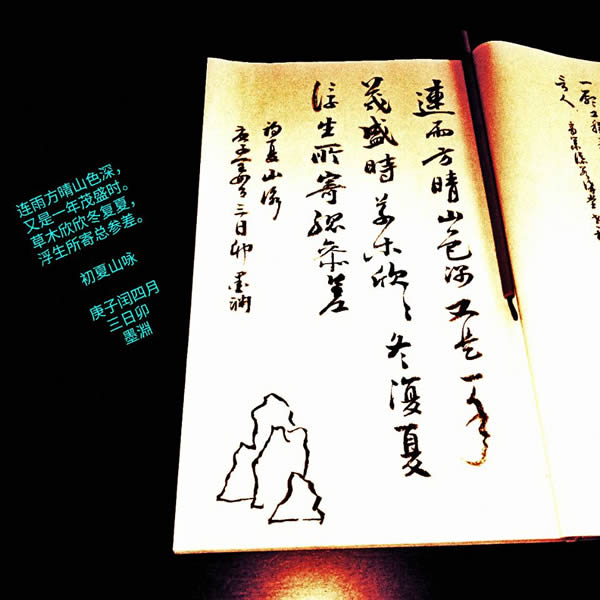 连雨方晴山色深，
又是一年茂盛时。
草木欣欣冬复夏，
浮生所寄总参差。
初夏山咏
庚子闰四月
三日卯
墨淵
連雨方晴山色深又是一年
茂盛時草木欣〻冬復夏
浮生所寄總參差
初夏山咏
庚子闰四月三日卯 墨淵